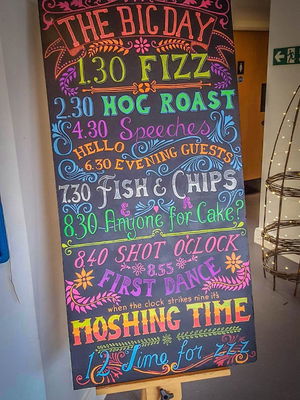 THE BIG DAY
1.30 FIZZ
2.30 HOG ROAST
4.30 Speeches
HELLO
6.30 EVENING GUESTS
7.30 FISH & CHIPS
8.30 Anyone for Cake?
8.40 SHOT O'CLOCK
8.55
FIRST DANCE
when the clock strikes nine it's
MOSHING TIME
12 Time for zzz